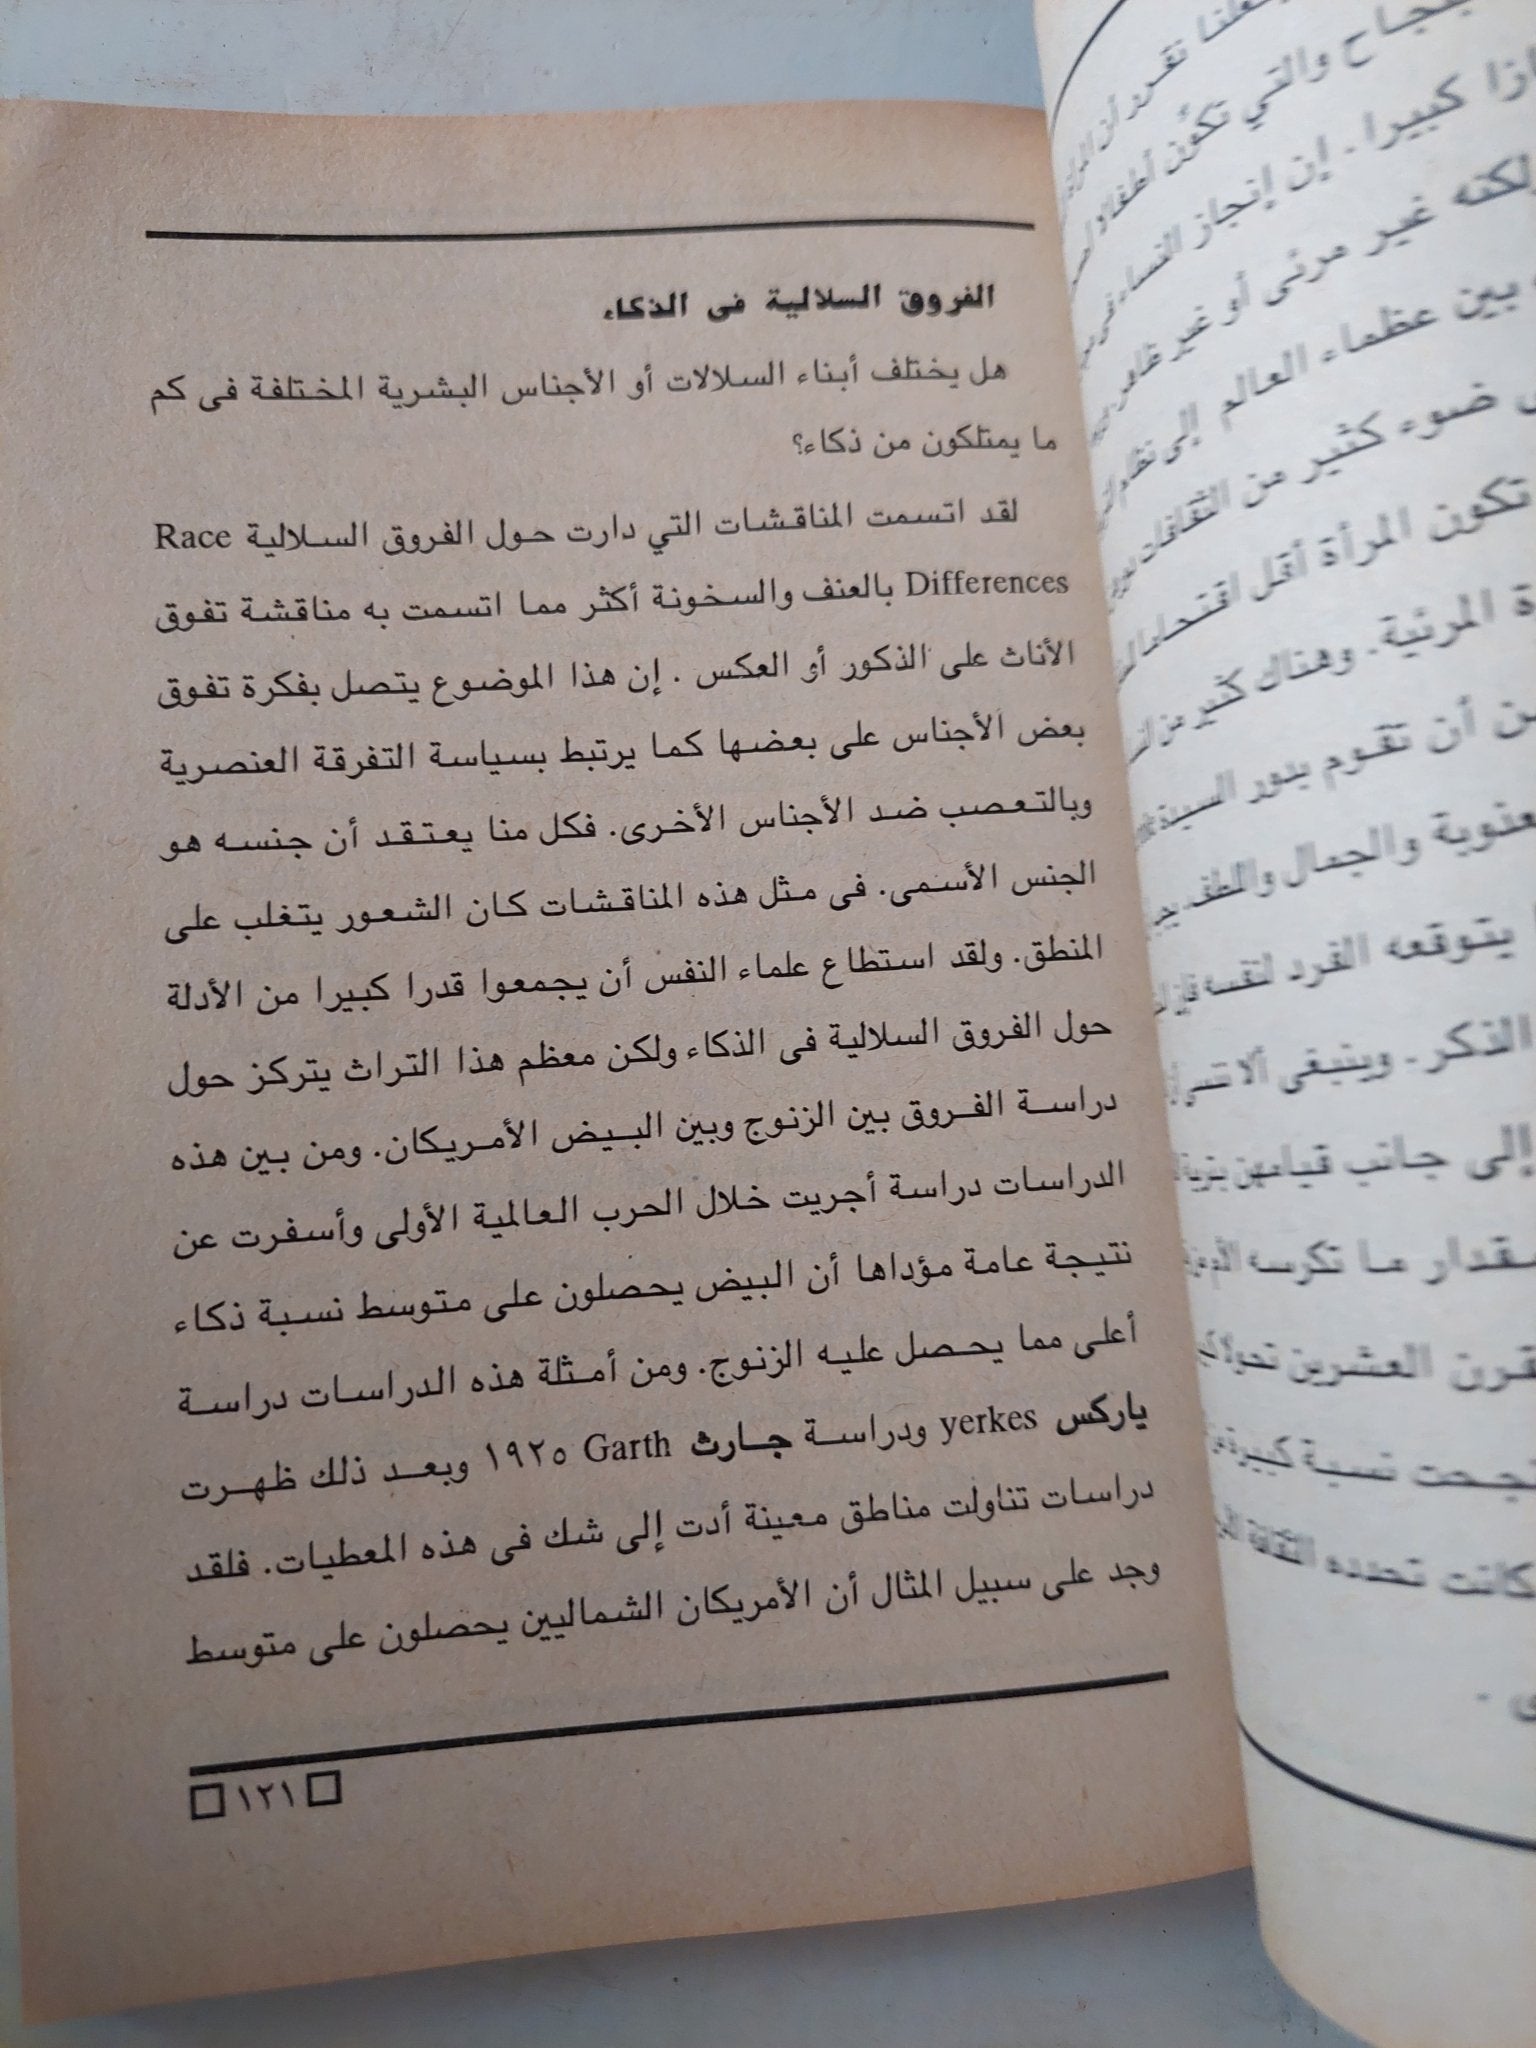 الفروق السلالية فى الذكاء
هل يختلف أبناء السلالات أو الأجناس البشرية المختلفة فى كم
ما يمتلكون من ذكاء؟
لقد اتسمت المناقشات التي دارت حول الفروق السلالية Race
Differences بالعنف والسخونة أكثر مما اتسمت به مناقشة تفوق
الأناث على الذكور أو العكس . إن هذا الموضوع يتصل بفكرة تفوق
بعض الأجناس على بعضها كما يرتبط بسياسة التفرقة العنصرية
وبالتعصب ضد الأجناس الأخرى. فكل منا يعتقد أن جنسه هو
الجنس الأسمى. فى مثل هذه المناقشات كان الشعور يتغلب على
المنطق. ولقد استطاع علماء النفس أن يجمعوا قدرا كبيرا من الأدلة
حول الفروق السلالية فى الذكاء ولكن معظم هذا التراث يتركز حول
دراسة الفروق بين الزنوج وبين البيض الأمريكان. ومن بين هذه
الدراسات دراسة أجريت خلال الحرب العالمية الأولى وأسفرت عن
نتيجة عامة مؤداها أن البيض يحصلون على متوسط نسبة ذكاء
أعلى مما يحصل عليه الزنوج. ومن أمثلة هذه الدراسات دراسة
ياركس yerkes ودراسة جارث Garth ١٩٢٥ وبعد ذلك ظهرت
دراسات تناولت مناطق معينة أدت إلى شك فى هذه المعطيات. فلقد
وجد على سبيل المثال أن الأمريكان الشماليين يحصلون على متوسط
١٢١
جاح والتي تكون أطفالا
ازا كبيرا . إن إنجاز النساء
لكنه غير مرئى أو غير ظاهر
بين عظماء العالم إلى
ضوء كثير من الثقافات
تكون المرأة أقل اقتحاما
ة المرئية . وهناك كثير من
ن أن تقوم بدور السيدة
عنوية والجمال واللطف
يتوقعه الفرد لنفسه
الذكر . وينبغى ألا
إلى جانب قيامهن
مقدار ما تكرسه الأم
قرن العشرين تحولا
نجحت نسبة كبيرة
كانت تحدده الثقافة